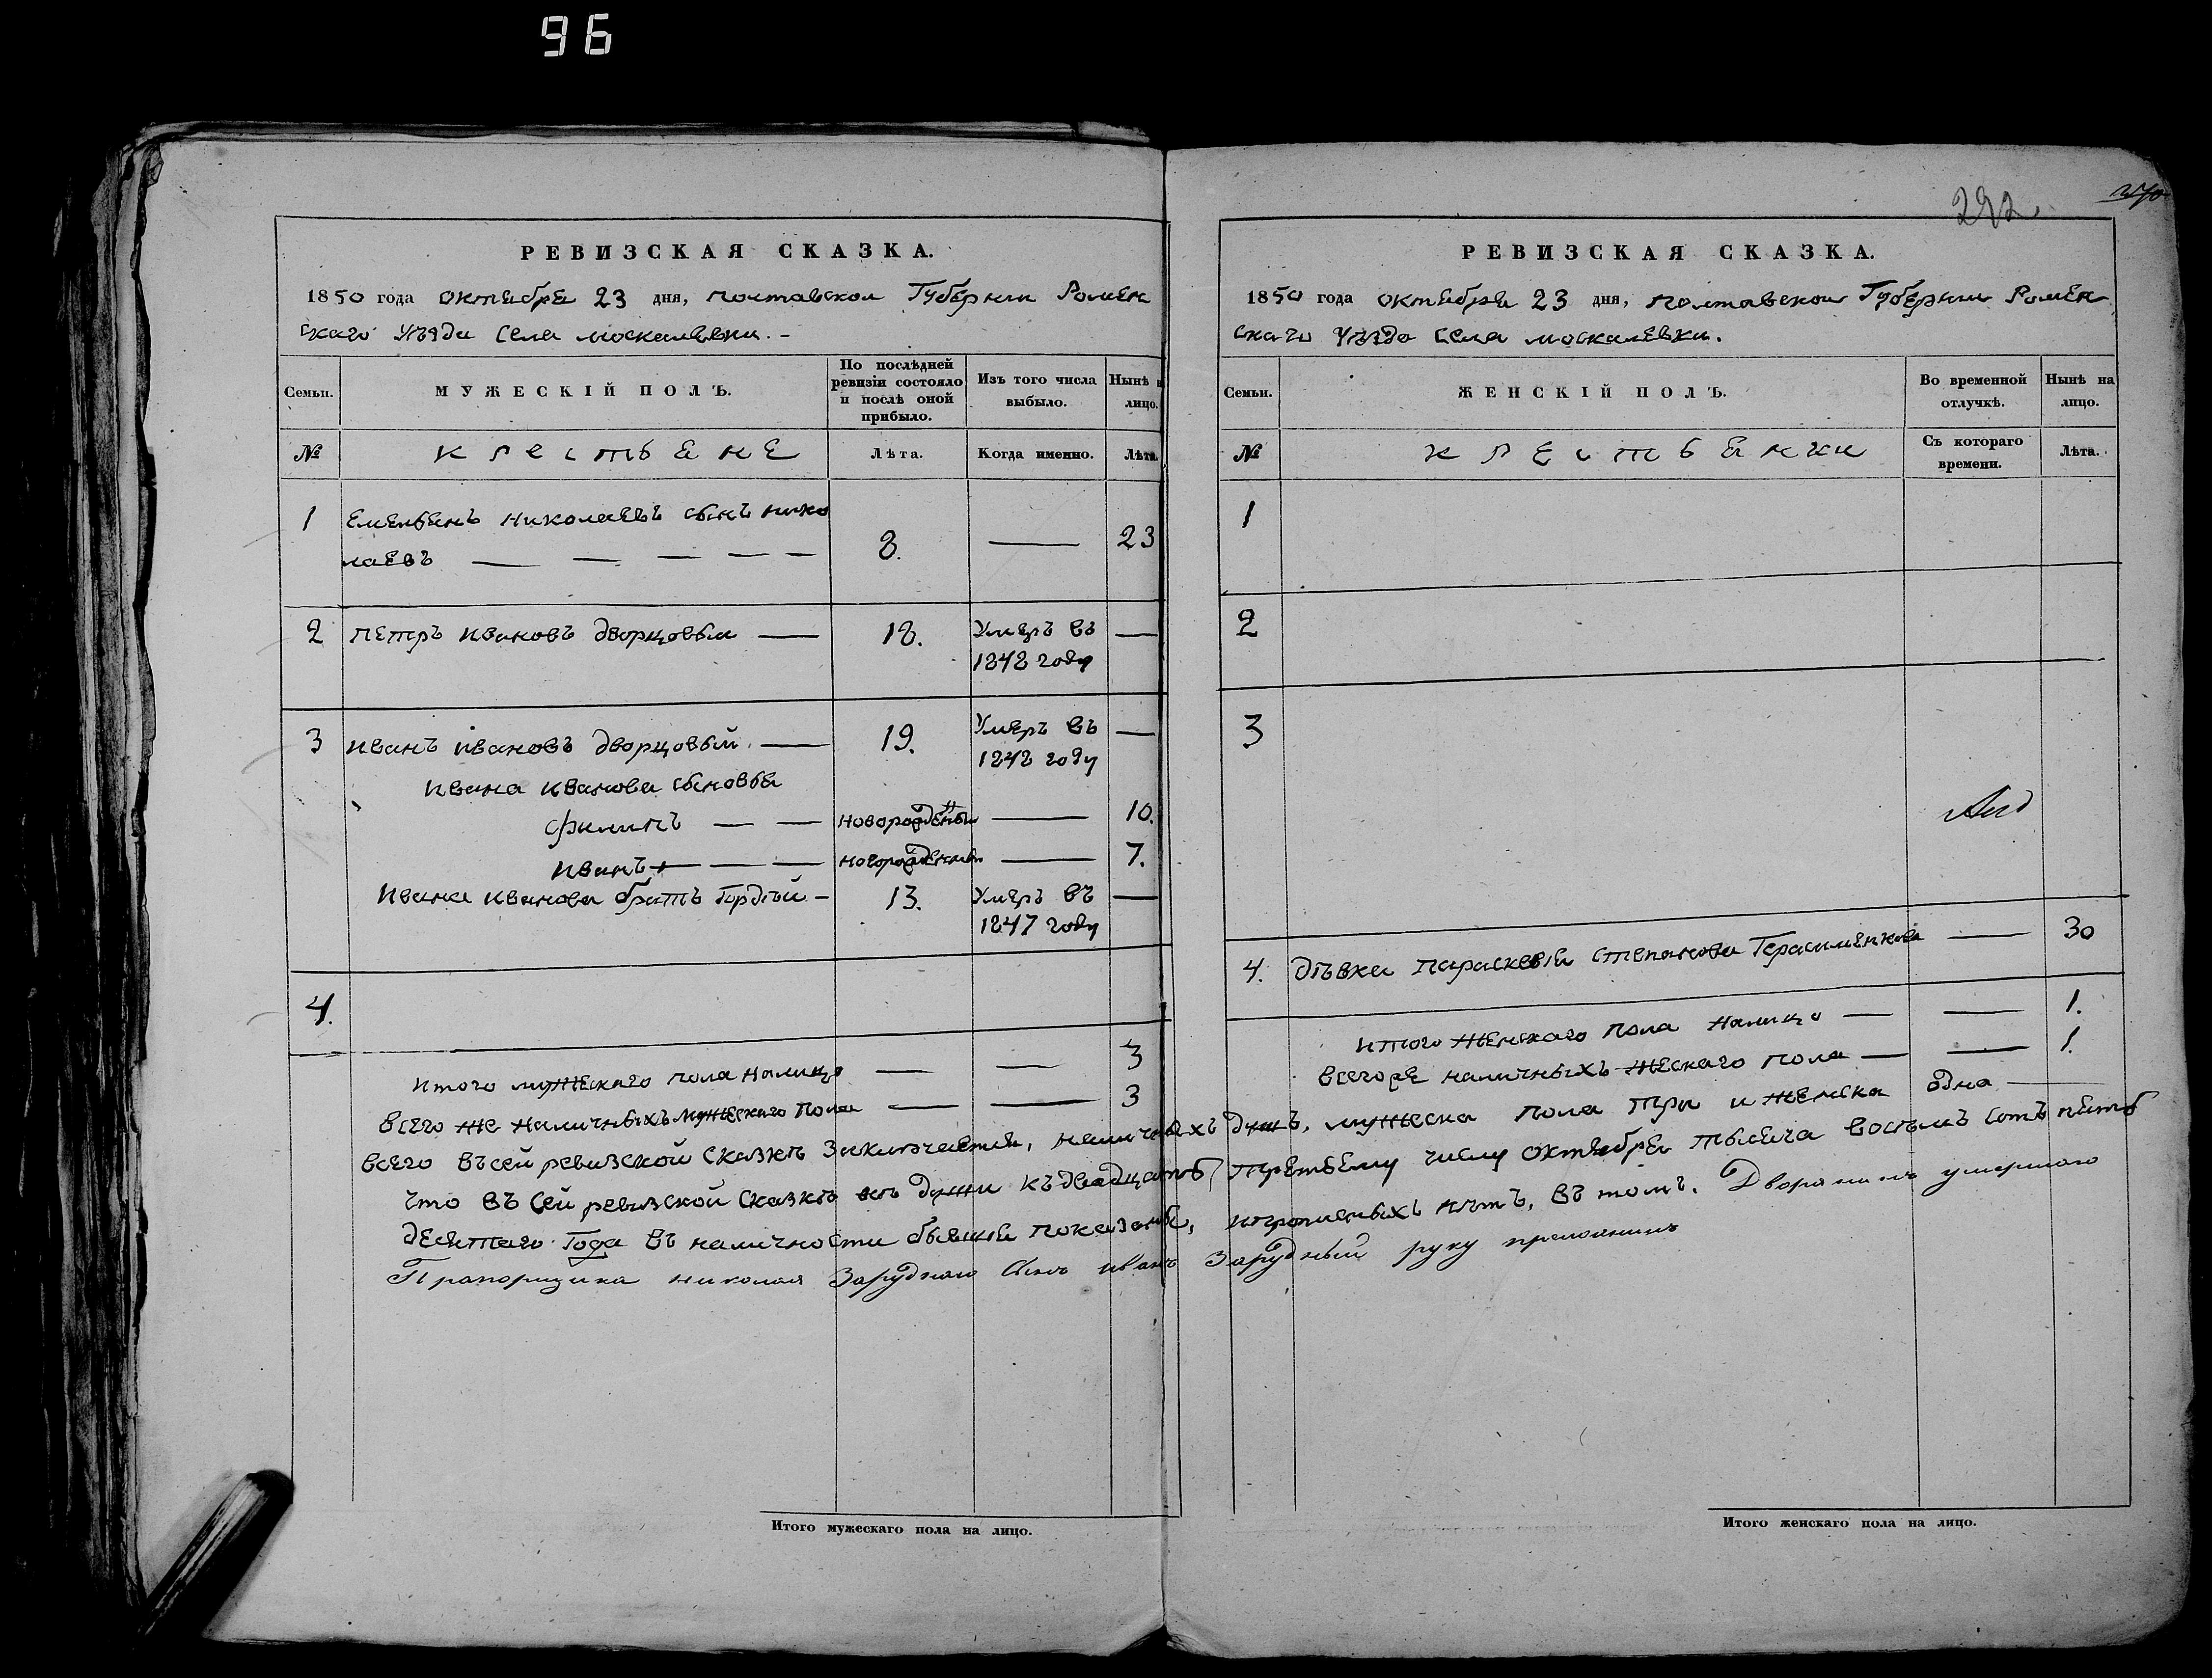 96
РЕВИЗСКАЯ СКАЗКА.
1850 года октебря 23 дня, полтавской Губернии Ромен
скаго уезда села москалевки. -
Семьи.
МУЖЕСКІЙ ПОЛЪ.
По послѣдней
ревизіи состояло
и послѣ оной
прибыло.
Изъ того числа
выбыло.
Нынѣ н
лицо.
№
крестьяне
Лѣта.
Когда именно.
Лѣта.
1 Емельянъ Николаевъ сынъ нико 8. — 23
лаевъ — — — — —
2 Петръ Ивановъ дворцовый — 18. Умеръ въ —
1848 году
3 Иванъ Ивановъ дворцовый — 19. Умеръ въ —
1848 году
Ивана Иванова сыновья
Филипъ — — новорожденый — 10.
Иванъ — — — новорожденый — 7.
Ивана Иванова братъ Гордѣй - 13. Умеръ въ —
1847 году
4.
Итого мужескаго пола налицо — — 3
всего же наличныхъ мужескаго пола — — 3
Итого мужескаго пола на лицо.
292
270
РЕВИЗСКАЯ СКАЗКА.
1850 года октебря 23 дня, полтавской Губернии Ромен
скаго уезда села москалевки.
Семьи.
ЖЕНСКІЙ ПОЛЪ.
Во временной
отлучкѣ.
Нынѣ на
лицо.
№
крестьянки
Съ котораго
времени.
Лѣта.
1
2
3
4. дѣвка Параскевія Степанова Герасименкова — 30
итого женскаго пола налицо — — 1.
всегоже наличныхъ жескаго пола — — 1.
всего въсей ревизской сказкѣ заключается, наличныхъ душъ, мужеска пола три и женска одна —
что въ сей ревизской сказкѣ всѣ души къ двадцать третьему числу октебря тысяча восемъ сотъ пять
десятаго года въ наличности бывшія показаны, ипрописныхъ нѣтъ, въ томъ. Дворянинъ умершаго
Прапорщика николая Заруднаго сынъ иванъ Зарудный руку приложилъ
Итого женскаго пола на лицо.